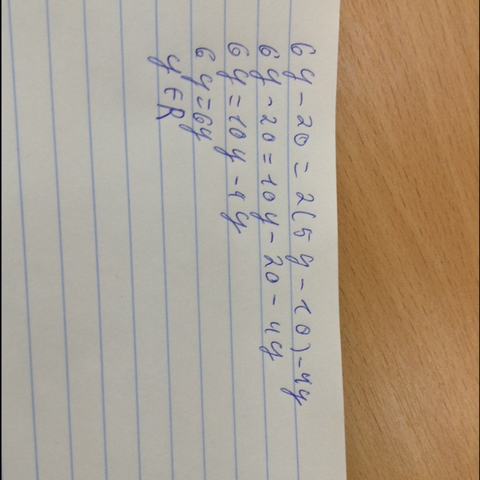 6y - 20 = 2(5y - 10) - 4y
6y - 20 = 10y - 20 - 4y
6y = 10y - 4y
6y = 6y
y ∈ R